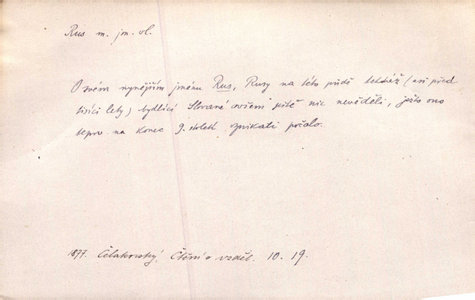 Rus m. jm. vl.
O svém nynějším jménu Rus, Rusy na této půdě tehdáž (asi před
tisíci lety) bydlící Slované ovšem ještě nic nevěděli, ješto ono
teprv na konec 9. století vznikati počalo.
1877. Čelakovský, Čtení o vzděl. 10. 19.